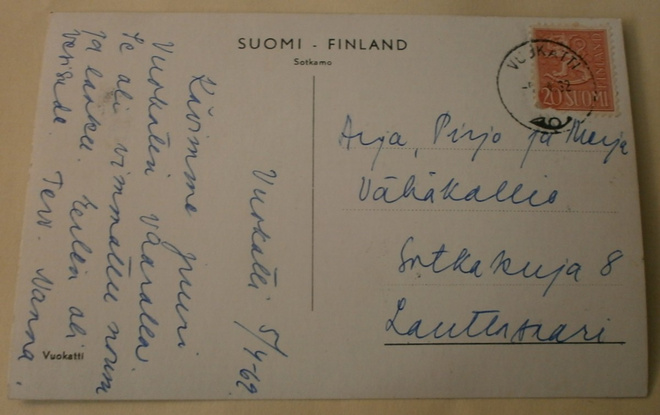 SUOMI - FINLAND
Sotkamo
VUOKATTI
20 SUOMI
Vuokatti 5/4-62
Kävimme juuri
Vuokatin vaaralla
Se oli vimmattu nousu
ja lasku. Eilen oli
Terv. Nanna.
Arja, Pirjo ja Merja
Vähäkallio
Sotkakuja 8
Lauttasaari
Vuokatti